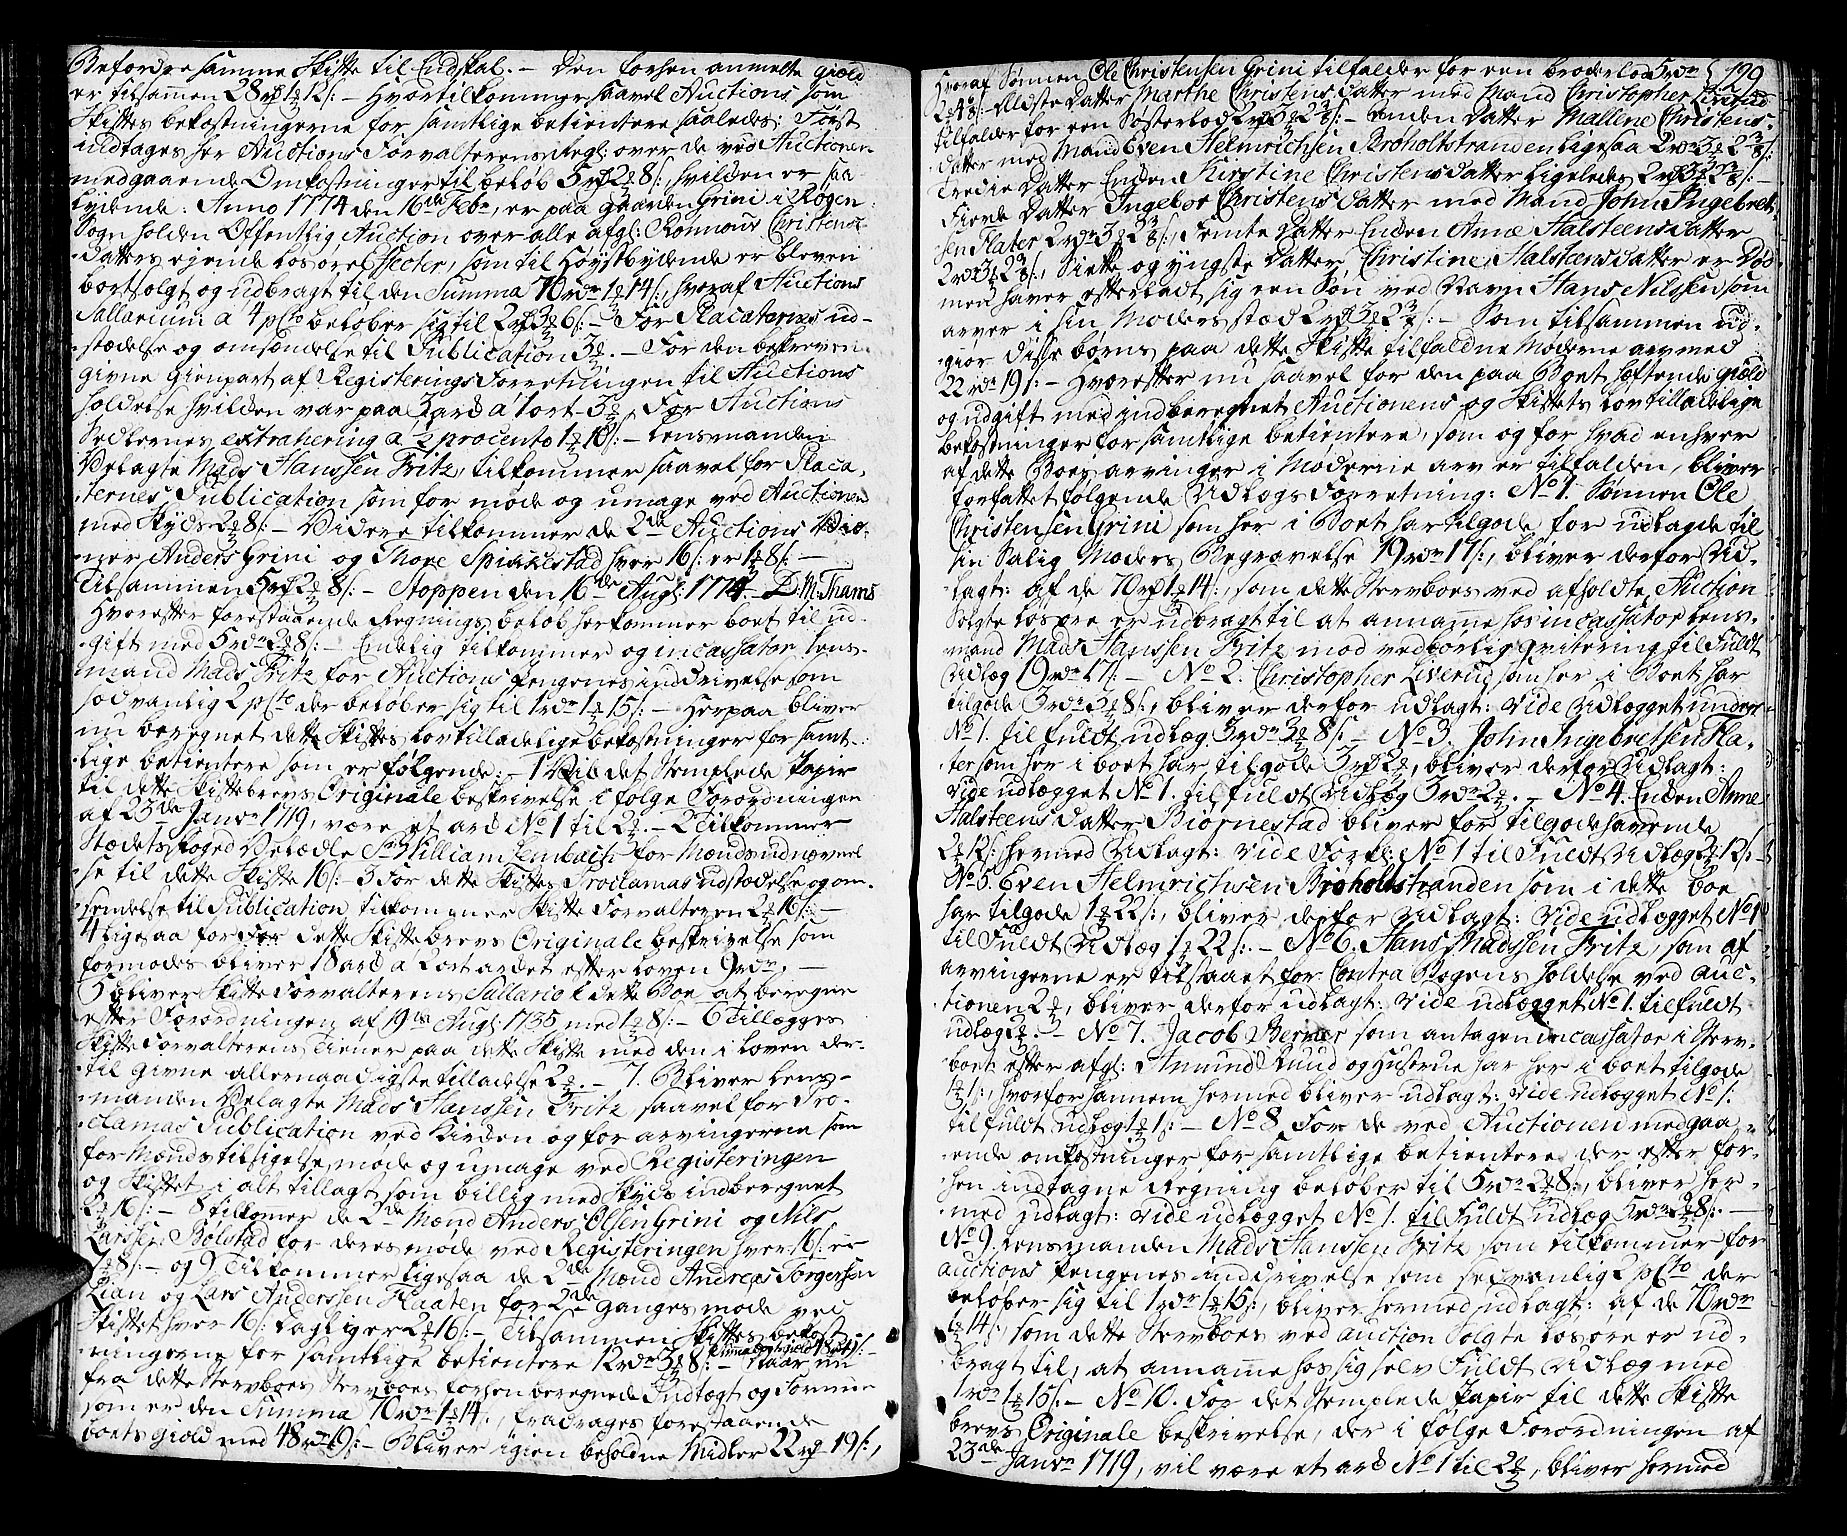 Befordre samme Skifte til Endskab. – Den forhen anmelte gield
er tilsammen 28 rd 1 ort 12 s: – Hvortilkommer saavel Auctions som
Skiftes bekostningerne for samtlige betientere saaledes: Først
indtages her Auctions Forvalterens Regl: over de ved Auctionen
medgaaende Omkostninger til beløb 5 rd 2 ort 8 s: hvilden er saa-
lydende: Anno 1774 den 16de Febr, er paa gaarden Grini i Røgen
Sogn holden Offentlig Auction over alle afgl: Rønnous Christens
datters ejende løsøre Effecter, som til Høystbydende er bleven
bortsolgt og udbragt til den Summa 70 rdr 1 ort 14 s, hvoraf Auctions
Sallarium a 4 pCto beløber sig til 2 rd 3 ort 6 s: – For Placaternes ud-
stædelse og omsendelse til Publication 3 ort. – For den beskreven
givne gienpart af Registerings Forretningen til Auctions
holdelse hvilden var paa 3 ard a 1 ort – 3 ort, For Auctions
Sedlernes extrahering a ½ procento 1 ort 10 s: – Lensmanden
Velagte Mads Hanssen Fritz, tilkommer saavel for Placa-
ternes Publication som for møde og umage ved Auctionen
med Skyds 2 ort 8 s: – Videre tilkommer de 2de Auctions Vid-
ner Anders Grini og Thore Spikkestad hver 16 s: er 1 ort 8 s: –
Tilsammen 5 rd 2 ort 8 s: – Hoppen den 16de Augl: 1774 – D. M. Thams
Hvorefter forestaaende Regnings beløb herkommer boet til ud-
gift med 5 rdr 2 ort 8 s: – Endelig tilkommer og incassator Lens-
mand Mads Fritz for Auctions pengenes inddrivelse som
sædvanlig 2 pCto der beløber sig til 1 rdr 1 ort 15 s: – Herpaa bliver
nu beregnet dette Skiftes lovtilladelige bekostninger for samt-
lige betientere som er følgende: – 1 Vil det Stemplede Papir
til dette Skiftebrevs Originale beskrivelse i følge Forordningen
af 23de Janv: 1719, være et ard No 1 til 2 ort. – 2 Tilkommer
Stædets Foged Velædle Sr William Lembach for Mænds udnævnel-
se til dette Skifte 16 s: – 3 For dette Skiftes Proclamas udstædelse og om-
sendelse til Publication tilkommer Skifte Forvalteren 2 ort 16 s: –
4 Ligesaa for dette Skiftebrevs Originale beskrivelse som
formodes bliver 18 ard a 2 ort ardet efter loven 9 rdr. –
5 Bliver Skifte Forvalterens Sallario i dette Boe at beregne
efter Forordningen af 19de Augl: 1735 med 1 ort 8 s: – 6 Tillægges
Skifte Forvalterens Tiener paa dette Skifte med den i loven der-
til givne allernaadigste tilladelse 2 ort. – 7. Bliver Lens-
manden Velagte Mads Hanssen Fritz saavel for Pro-
clamas Publication ved Kirken og for arvingerne som
for Mænds tilsigelse, møde og umage ved Registeringen
og Skiftet i alt tillagt som billig med Skyds indberegnet
2 ort 16 s: – 8 tilkomer de 2de Mænd Anders Olsen Grini og Nils
Larsen Bølstad for deres møde ved Registeringen hver 16 s: er
1 ort 8 s: – og 9 Tilkommer ligesaa de 2de Mænd Andreas Torgersen
Lian og Lars Anderssen Haaten for 2de ganges møde ved
Skiftet hver 16 s: daglig er 2 ort 16 s: – Tilsammen Skiftes bekost-
ningerne for samtlige betientere 12 rdr 3 ort 8 s: – Naar nu
fra dette Stervboes Stervboes forhen beregnede Indtægt og Formue
som er den Summa 70 rdr 1 ort 14 s, fradrages forestaaende
boets gield med 48 rd 19 s: – Bliver igien beholdne Midler 22 rd 19 s:,
199
Hvoraf Sønnen Ole Christensen Grini tilfalder for een broderlod 5 rdr
2 ort 4 s: – Eldste datter Marthe Christens datter med Mand Christopher Liverud
tilfalder for een Søsterlod 2 rd 3 ort 2 s: – Anden datter Mallene Christens-
datter med Mand Even Helmrichsen Brøholtstranden ligesaa 2 rdr 3 ort 2 s:
Tredie datter Enden Kirstine Christensdatter ligeledes 2 rd 3 ort 2 s: –
Fierde datter Ingebor Christens datter med Mand John Ingebret-
sen Flater 2 rdr 3 ort 2 s:, Femte datter Enden Anne Halsteens datter
2 rd 3 ort 2 s:, Siette og yngste datter Christine Halsteensdatter er død
men haver efterladt sig een Søn ved Navn Hans Nilssen som
arver i sin Moders stæd 2 rd 3 ort 2 s: – Som tilsammen ud-
giør disse børns paa dette Skifte tilfaldne Møderne arv med
22 rdr 19 s: – Hvorefter nu saavel for den paa Boet heftende gield
og udgift med indberegnet Auctionens og Skiftets lovtilladelige
bekostninger for samtlige betientere, som og for hvad enhver
af dette Boes arvinger i Møderne arv er tilfalden, bliver
forfattet følgende Udlogs Forretning: No 1. Sønnen Ole
Christensen Grini som her i Boet har tilgode for udlagde til
sin Salig Moders Begravelse 19 rdr 17 s:, bliver derfor Ud-
lagt: af de 70 rd 1 ort 14 s:, som dette Stervboes ved afholdte Auction
Solgte løsøre er udbragt til at annamme hos incassator Lens-
mand Mads Hanssen Fritz mod vedbørlig qvitering til Fuldt
Udlæg 19 rdr 17 s: – No 2. Christopher Liverud som her i Boet har
tilgode 3 rdr 3 ort 8 s:, bliver derfor udlagt: Vide Udlægget under
No 1. til fuldt udlæg 3 rdr 3 ort 8 s: – No 3. John Ingebretsen Fla-
ter som her i boet har tilgode 3 rd 2 ort, bliver derfor Udlagt:
Vide udlægget No 1. til fuldt Udlæg 3 rdr 2 ort. – No 4. Enden Anne
Halsteens datter Biørnestad bliver for tilgodehavende
2 ort 12 s: hermed Udlagt: Vide Forkl: No 1 til Fuldt Udlæg 2 ort 12 s: –
No 5. Even Helmrichsen Brøholtstranden som i dette boe
har tilgode 1 ort 22 s:, bliver derfor Udlagt: Vide udlægget No 1
til Fuldt Udlæg 1 ort 22 s: – No 6. Hans Madssen Fritz, som af
arvingerne er tilstaaet for Contra Bogens holdelse ved Auc-
tionen 2 ort, bliver derfor udlagt: Vide udlægget No 1. til fuldt
udlæg 2 ort. – No 7. Jacob Berner som antagen incassator i Sterv-
boet efter afgl: Amund Ruud og Hustrue har her i boet tilgode
1 ort 1 s:, hvorfor hannem hermed bliver udlagt: Vide udlægget No 1.
til fuldt udlæg 1 ort 1 s: – No 8. For de ved Auctionen medgaa-
ende omkostninger for samtlige betientere, der efter for-
hen indtagne Regning beløber til 5 rdr 2 ort 8 s:, bliver her-
med udlagt: Vide udlægget No 1. til Fuldt udlæg 5 rdr 2 ort 8 s: –
No 9. Lensmanden Mads Hanssen Fritz som tilkommer for
auctions pengenes inddrivelse som sedvanlig 2 pCto der
beløber sig til 1 rdr 1 ort 15 s:, bliver hermed udlagt: af de 70 rdr
1 ort 14 s:, som dette Stervboes ved auction Solgte løsøre er ud-
bragt til, at annamme hos sig selv Fuldt Udlæg med
1 rdr 1 ort 15 s: – No 10. For det Stemplede Papir til dette Skifte
brevs Originale beskrivelse, der i følge Forordningen af
23de Janv: 1719, vil være et ard No 1 til 2 ort, bliver hermed